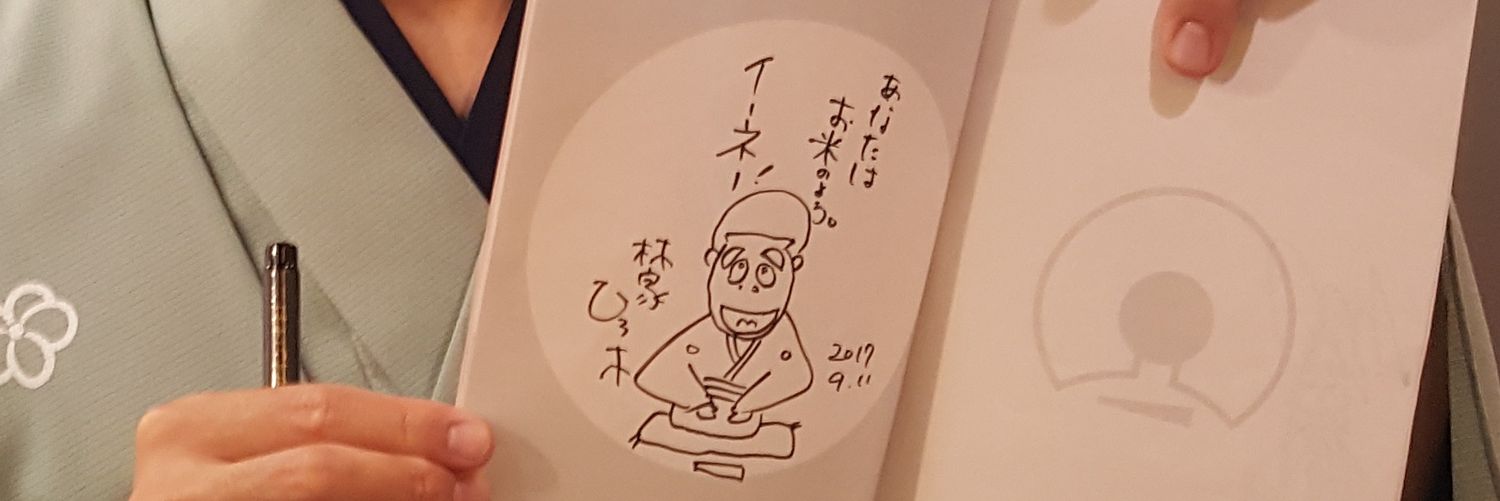 あなたは
お米のよう。
イーネー!
林家
ひろ木
2017
9.11